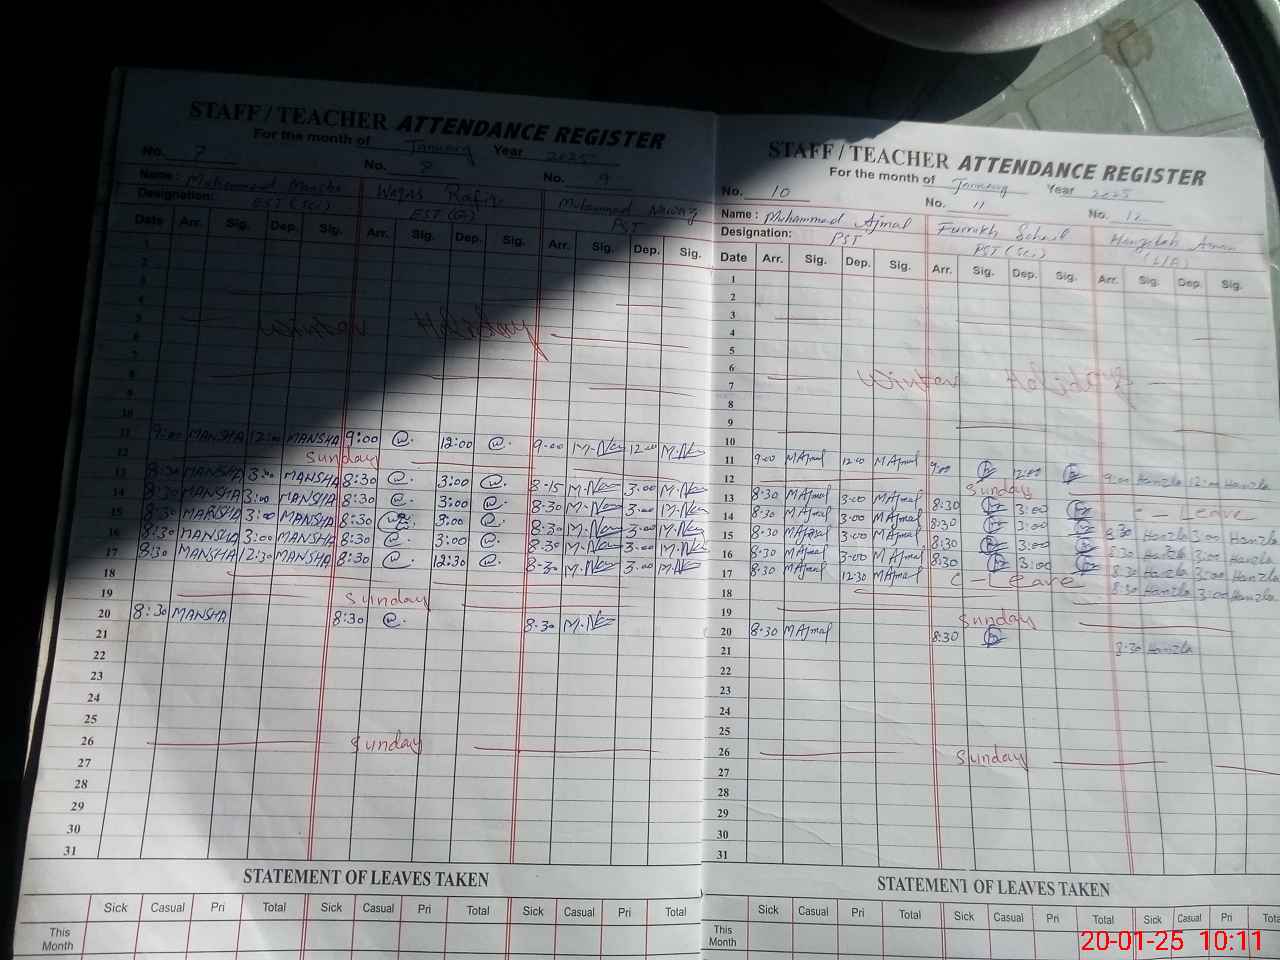 STAFF / TEACHER ATTENDANCE REGISTER
For the month of January Year 2025
No. 7 No. 8 No. 9
Name : Muhammad Mansha Waqas Rafiq Muhammad Nawaz
Designation: EST (Sci) EST (G) PST
Date Arr. Sig. Dep. Sig. Arr. Sig. Dep. Sig. Arr. Sig. Dep. Sig.
1
2
3
4
5 Winter Holiday
6
7
8
9
10
11 9:00 MANSHA 12:00 MANSHA 9:00 @. 12:00 @. 9-00 M-Naw 12-00 M-Naw
12 Sunday
13 8:30 MANSHA 3:00 MANSHA 8:30 @. 3:00 @. 8-15 M-Naw 3-00 M-Naw
14 8:30 MANSHA 3:00 MANSHA 8:30 @. 3:00 @. 8-30 M-Naw 3-00 M-Naw
15 8:30 MANSHA 3:00 MANSHA 8:30 @. 3:00 @. 8-30 M-Naw 3-00 M-Naw
16 8:30 MANSHA 3:00 MANSHA 8:30 @. 3:00 @. 8-30 M-Naw 3-00 M-Naw
17 8:30 MANSHA 12:30 MANSHA 8:30 @. 12:30 @. 8-30 M-Naw 3-00 M-Naw
18
19 Sunday
20 8:30 MANSHA 8:30 @. 8-30 M-Naw
21
22
23
24
25
26 Sunday
27
28
29
30
31
STATEMENT OF LEAVES TAKEN
Sick Casual Pri Total Sick Casual Pri Total Sick Casual Pri Total
This Month
STAFF / TEACHER ATTENDANCE REGISTER
For the month of January Year 2025
No. 10 No. 11 No. 12
Name : Muhammad Ajmal Furrukh Sohail Hanzalah
Designation: PST PST (Sci)
Date Arr. Sig. Dep. Sig. Arr. Sig. Dep. Sig. Arr. Sig. Dep. Sig.
1
2
3
4
5
6 Winter Holiday
7
8
9
10
11 9:00 MAjmal 12:00 MAjmal 9:00 12:00 9:00 Hanzla 12:00 Hanzla
12 Sunday
13 8:30 MAjmal 3:00 MAjmal 8:30 3:00 C - Leave
14 8:30 MAjmal 3:00 MAjmal 8:30 3:00 8:30 Hanzla 3:00 Hanzla
15 8:30 MAjmal 3:00 MAjmal 8:30 3:00 8:30 Hanzla 3:00 Hanzla
16 8:30 MAjmal 3:00 MAjmal 8:30 3:00 8:30 Hanzla 3:00 Hanzla
17 8:30 MAjmal 12:30 MAjmal C - Leave 8:30 Hanzla 3:00 Hanzla
18
19 Sunday
20 8:30 MAjmal 8:30 8:30 Hanzla
21
22
23
24
25
26 Sunday
27
28
29
30
31
STATEMENT OF LEAVES TAKEN
Sick Casual Pri Total Sick Casual Pri Total Sick Casual Pri
This Month
20-01-25 10:11